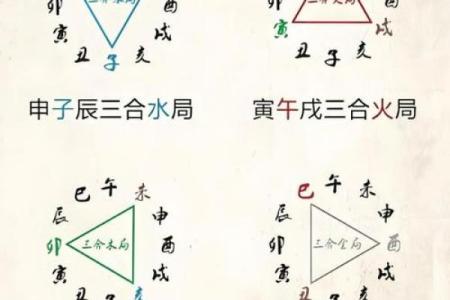 三合水局 三合火局
卯 酉 卯 酉
寅 戌 寅 戌
丑 子 亥 丑 子 亥
申子辰三合水局 寅午戌三合火局
巳 午 未 巳 午 未
辰 申 辰 申
卯 三合木局 酉 卯 三合金局 酉
寅 戌 寅 戌
丑 子 亥 丑 子 亥